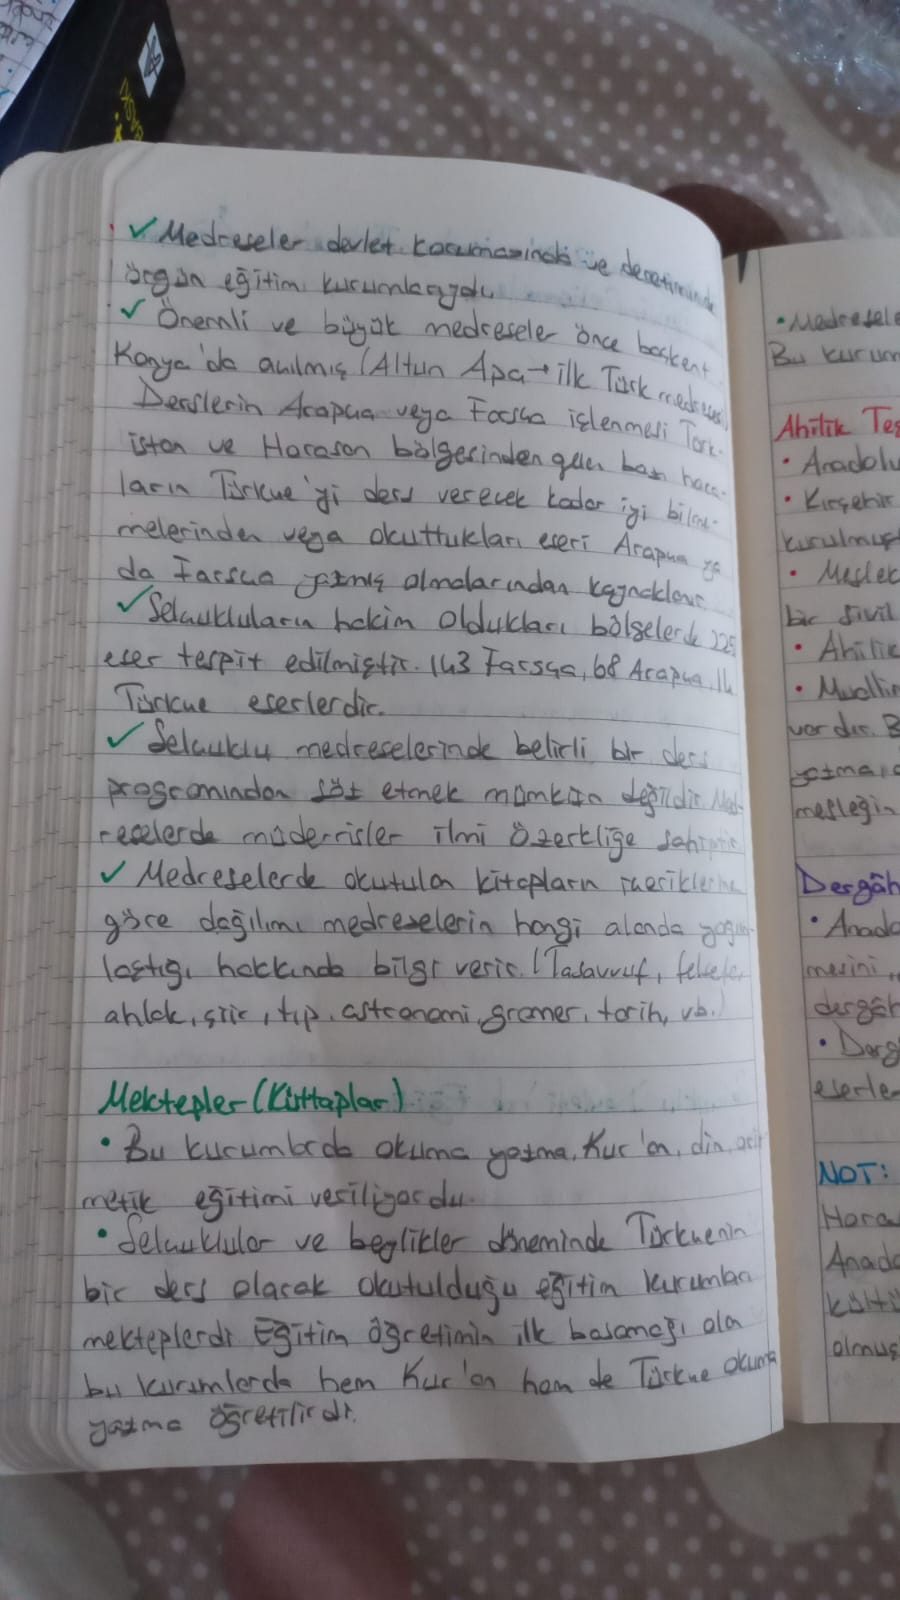 ✓ Medreseler devlet korumasında ve denetiminde
örgün eğitim kurumlarıydı.
✓ Önemli ve büyük medreseler önce başkent
Konya'da açılmış (Altun Apa → ilk Türk medresesi)
Derslerin Arapça veya Farsça işlenmesi Türk-
istan ve Horasan bölgesinden gelen bazı hoca-
ların Türkçe'yi ders verecek kadar iyi bilme-
melerinden veya okuttukları eseri Arapça ya
da Farsça yazmış olmalarından kaynaklanır.
✓ Selçukluların hakim oldukları bölgelerde 225
eser tespit edilmiştir. 143 Farsça, 68 Arapça, 14
Türkçe eserlerdir.
✓ Selçuklu medreselerinde belirli bir ders
programından söz etmek mümkün değildir. Med-
reselerde müderrisler ilmi özerkliğe sahiptir.
✓ Medreselerde okutulan kitapların içeriklerine
göre dağılımı medreselerin hangi alanda yoğun-
laştığı hakkında bilgi verir. (Tasavvuf, felsefe,
ahlak, şiir, tıp, astronomi, gramer, tarih, vb.)
Mektepler (Küttaplar)
• Bu kurumlarda okuma yazma, Kur'an, din, arit
metik eğitimi veriliyordu.
• Selçuklular ve beylikler döneminde Türkçenin
bir ders olarak okutulduğu eğitim kurumları
mekteplerdi Eğitim öğretimin ilk basamağı olan
bu kurumlarda hem Kur'an hem de Türkçe okuma
yazma öğretilirdi.
• Medresele
Bu kurum
Ahilik Teş
• Anadolu
• Kırşehir
kurulmuşt
• Meslek
bir sivil
• Ahilik
• Muallim
vardır. B
yazma,
mesleğin
Dergâh
• Anado
mesini,
dergâh
• Derg
eserle
NOT:
Hora
Anado
kültü
olmuş